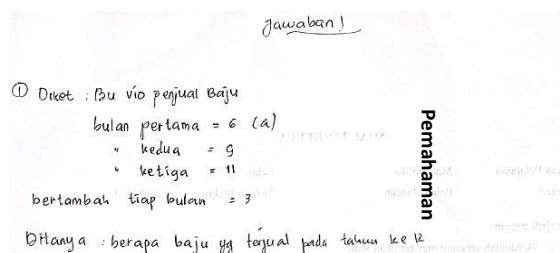 Jawaban!
① Diket : Bu vio penjual Baju
bulan pertama = 6 (a)
" kedua = 9
" ketiga = 11
bertambah tiap bulan = 3
Ditanya : berapa baju yg terjual pada tahun ke 12
Pemahaman